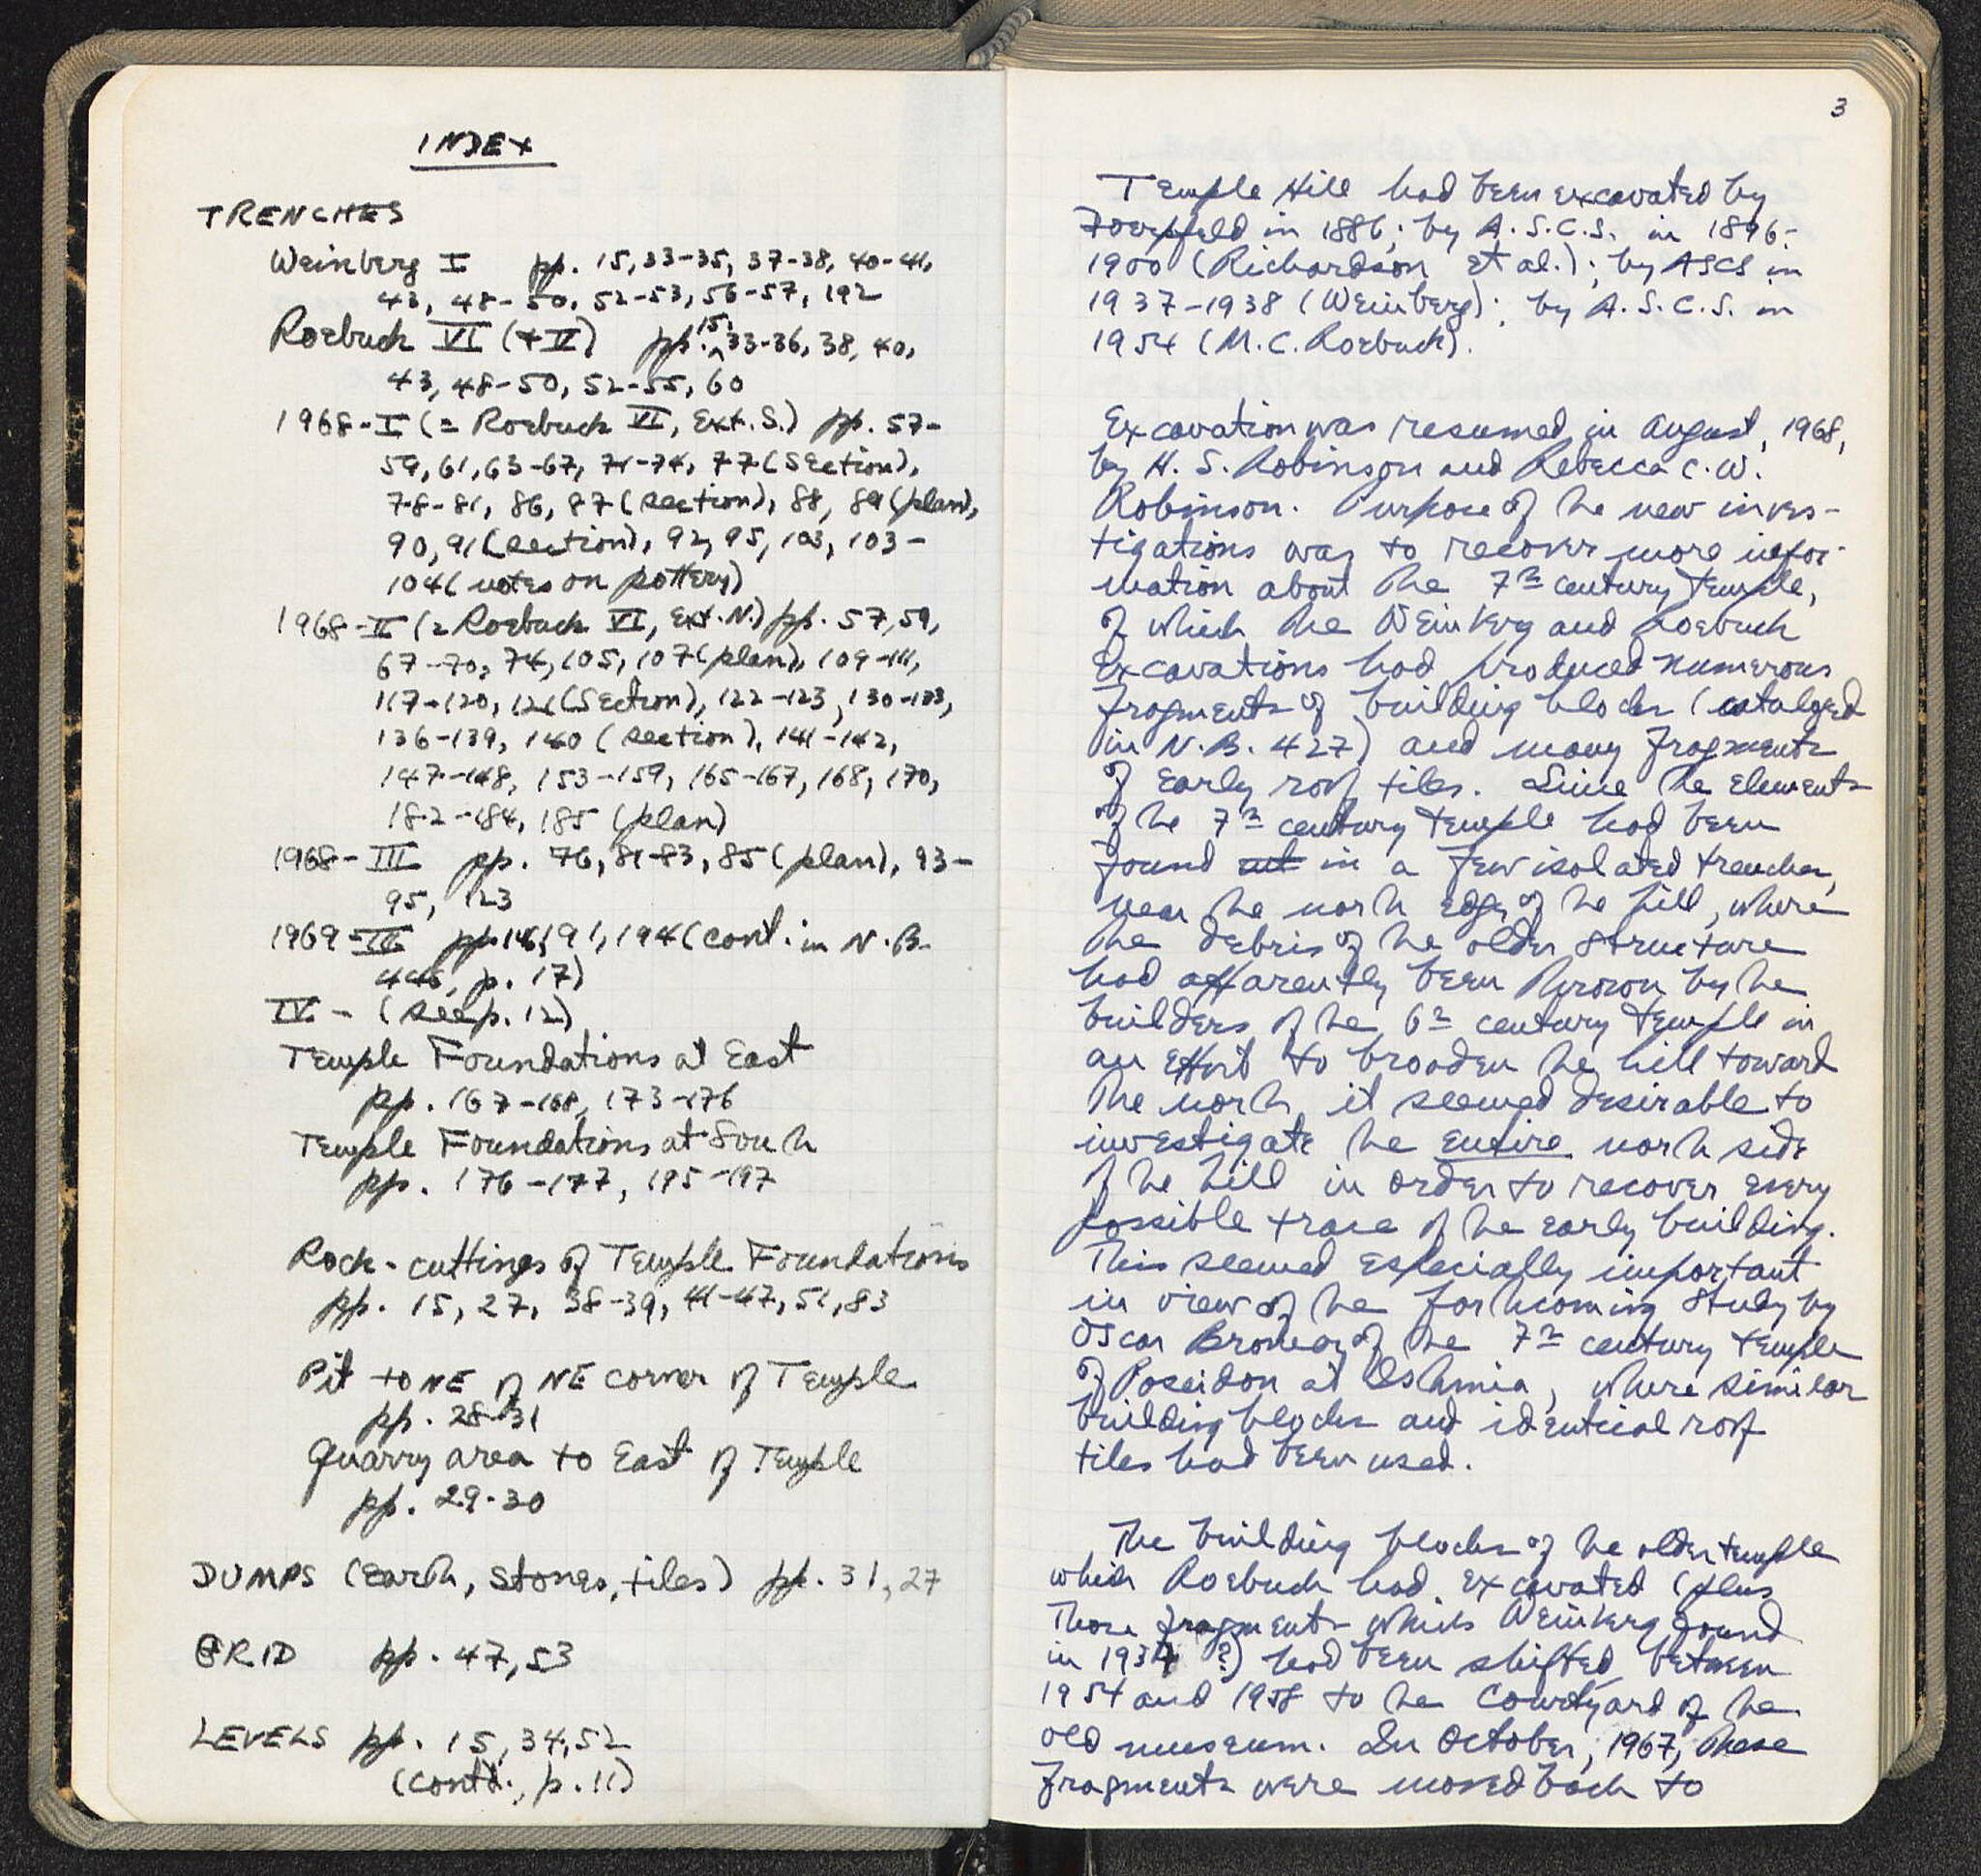 INDEX
TRENCHES
Weinberg I pp. 15, 33-35, 37-38, 40-41,
43, 48-50, 52-53, 56-57, 192
Roebuck VI (+V) pp. 15, 33-36, 38, 40,
43, 48-50, 52-55, 60
1968-I (= Roebuck VI, Ext. S.) pp. 57-
59, 61, 63-67, 71-74, 77 (Section),
78-81, 86, 87 (section), 88, 89 (plan),
90, 91 (section), 92, 95, 103, 103-
104 (notes on pottery)
1968-II (= Roebuck VI, Ext. N.) pp. 57, 59,
67-70, 74, 105, 107 (plan), 109-111,
117-120, 121 (Section), 122-123, 130-133,
136-139, 140 (section), 141-142,
147-148, 153-159, 165-167, 168, 170,
182-184, 185 (plan)
1968-III pp. 76, 81-83, 85 (plan), 93-
95, 123
1969-III pp. 191, 194 (cont. in N.B.
446, p. 17)
IV - (see p. 12)
Temple Foundations at East
pp. 167-168, 173-176
Temple Foundations at South
pp. 176-177, 195-197
Rock-cuttings of Temple Foundations
pp. 15, 27, 38-39, 41-47, 51, 83
Pit to NE of NE corner of Temple
pp. 28-31
Quarry area to East of Temple
pp. 29-30
DUMPS (earth, stones, tiles) pp. 31, 27
GRID pp. 47, 53
LEVELS pp. 15, 34, 52
(contd., p. 11)
3
Temple Hill had been excavated by
in 1886; by A.S.C.S. in 1896-
1900 (Richardson et al.); by ASCS in
1937-1938 (Weinberg); by A.S.C.S. in
1954 (M.C. Roebuck).
Excavation was resumed in August, 1968,
by H. S. Robinson and Rebecca C. W.
Robinson. Purpose of the new inves-
tigations was to recover more infor-
mation about the 7th century temple,
of which the Weinberg and Roebuck
excavations had produced numerous
fragments of building blocks (cataloged
in N.B. 427) and many fragments
of early roof tiles. Since the elements
of the 7th century temple had been
found in a few isolated trenches,
near the north edge of the hill, where
the debris of the older structure
had apparently been thrown by the
builders of the 6th century temple in
an effort to broaden the hill toward
the north, it seemed desirable to
investigate the entire north side
of the hill in order to recover every
possible trace of the early building.
This seemed especially important
in view of the forthcoming study by
Oscar Broneer of the 7th century temple
of Poseidon at Isthmia, where similar
building blocks and identical roof
tiles had been used.
The building blocks of the older temple
which Roebuck had excavated (plus
those fragments which Weinberg found
in 1937 ?) had been shifted between
1954 and 1958 to the courtyard of the
old museum. In October, 1967, these
fragments were moved back to